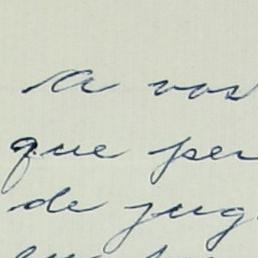 A vos
que per
de jug